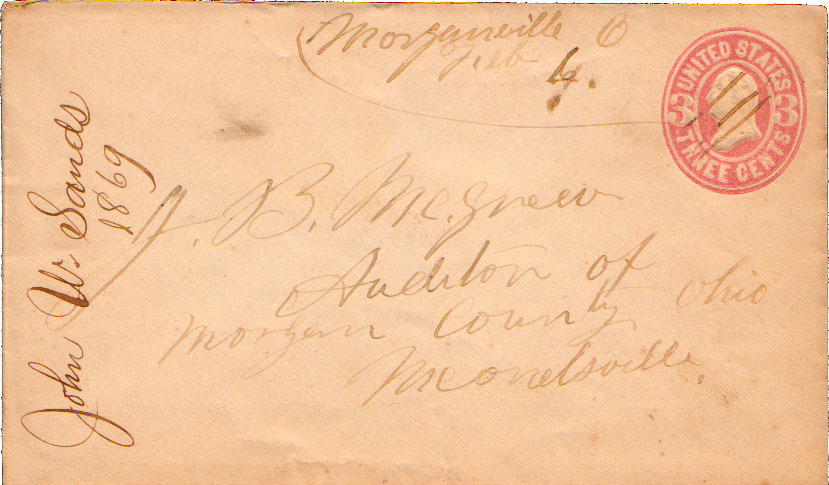 Morganville O
Feb 4.
UNITED STATES
3 3
THREE CENTS
John W. Sands
1869
J. B. McGrew
Auditor of
Morgan County Ohio
McConelsville.